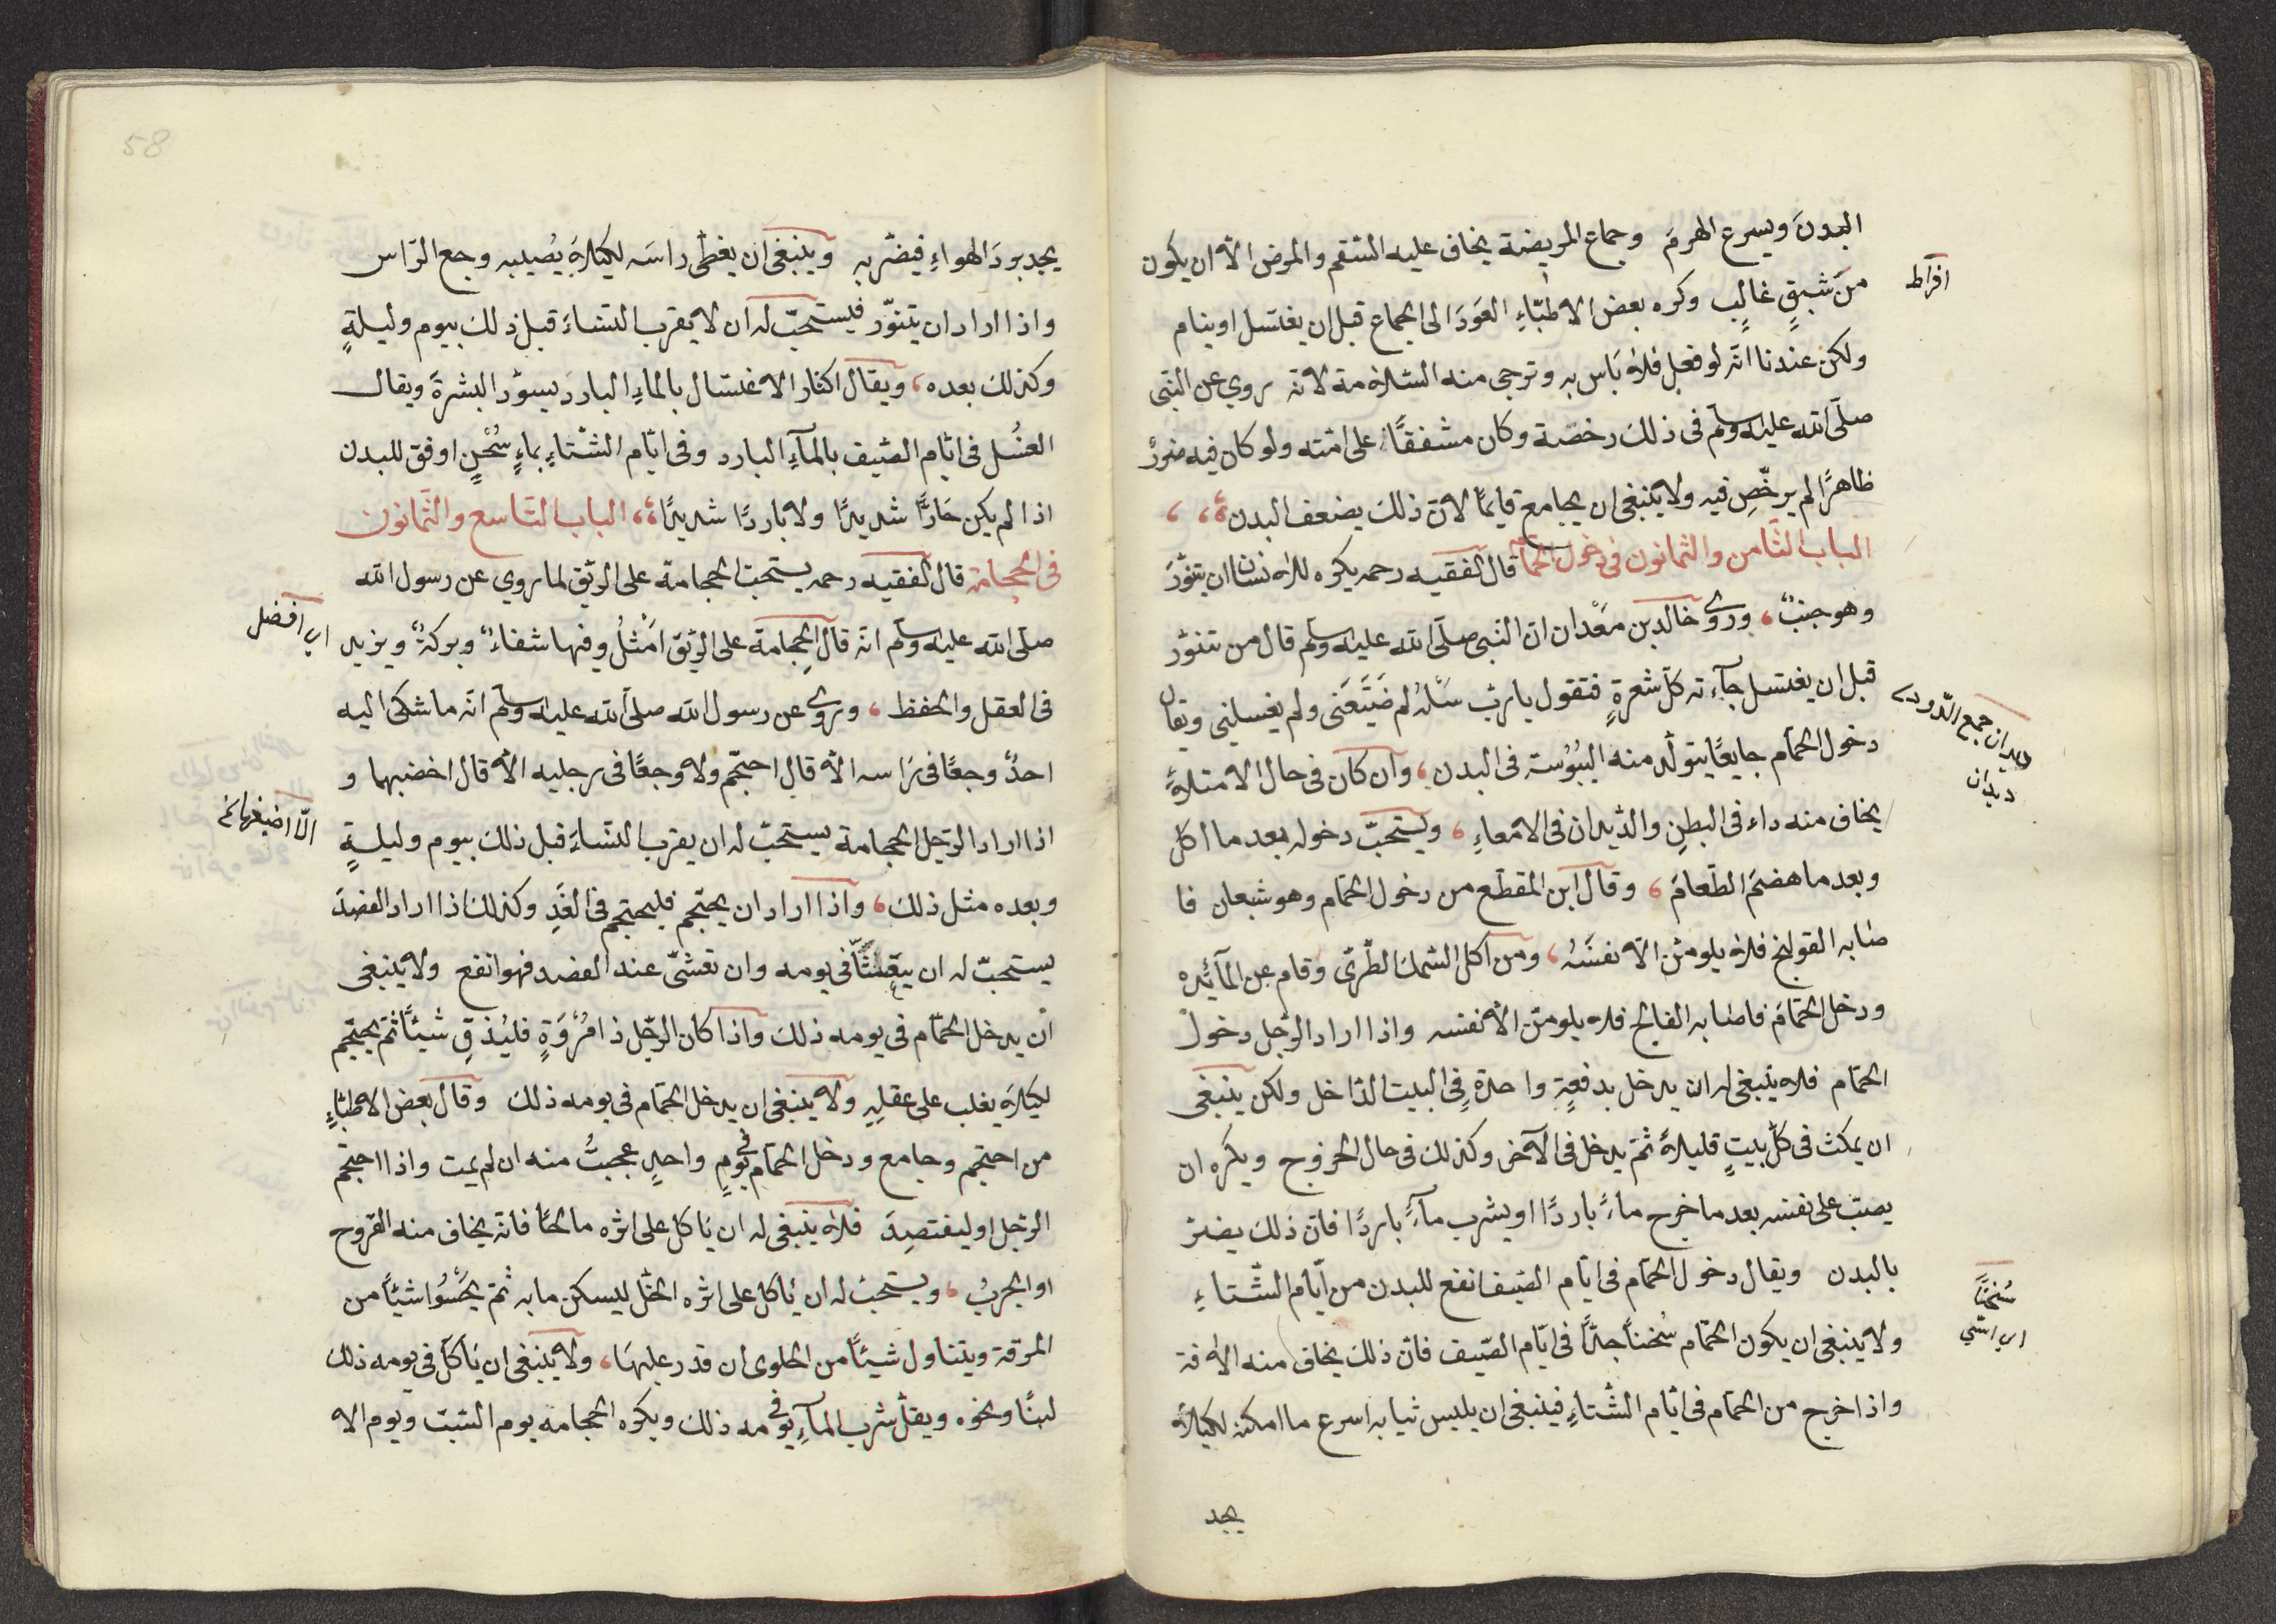 البدنَ ويسرع الهرمَ وجماع المريضة يخاف عليه السّقم والمرض الّا ان يكون
افراط
من شبقٍ غالبٍ وكره بعض الاطبّاءِ العَوَدَ الى الجماع قبل ان يغتسل او ينام
ولكن عندنا انّه لو فعل فلا بَاس به وترجى منه السّلامة لانّه روي عن النّبى
صلّى الله عليه وسلّم فى ذلك رخصة وكان مشفقًا على امّته ولو كان فيه ضررٌ
ظاهرًا لم يرخّصِ فيه ولا ينبغى ان يجامع قايمًا لانّ ذلك يضعف البدن
الباب الثّامن والثمانون فى دخول الحمّام قال الفقيه رحمه يكره للانسان ان يتنوّرَ
وهو جنبٌ، وروى خالد بن مَعْدان انّ النّبى صلّى الله عليه وسلّم قال من تنوّر
قبل ان يغتسل جآءته كلّ شعرةٍ فتقول يا ربّ سَلْهُ لم ضَيَّعَنى ولم يغسلنى ويقال
ديدان جمع الدّود
ديدان
دخول الحمّام جايعًا يتولّد منه اليُبُوُسَة فى البدن، وان كان فى حال الامتلاءً
يخاف منه داء فى البطنِ والدّيدان فى الامعاءِ، ويستحبّ دخوله بعد ما اكل
وبعد ما هضمَ الطّعامَ، وقال ابن المقطّع من دخول الحمّام وهو شبعان فا
صابه القولنج فلا يلومنّ الّا نفسَهُ، ومن اكل السّمك الطّرىّ وقام عن المآئِدة
ودخل الحمّامَ فاصابه الفالج فلا يلومنّ الّا نفسه واذا اراد الرّجل دخول
الحمّام فلا ينبغى له ان يدخل بدفعةٍ واحدةٍ فِى البيت الدّاخل ولكن ينبغى
ان يمكث فى كلّ بيتٍ قليلاً ثمّ يدخل فى الآخر وكذلك فى حال الخروج ويكره ان
يصبّ على نفسه بعد ما خرج ماءً باردًا او يشرب مآءً باردًا فانّ ذلك يضرّ
بالبدن ويقال دخول الحمّام فى ايّام الصّيف انفع للبدن من ايّام الشّتاءِ
سُخنًا
ولا ينبغى ان يكون الحمّام سُخنًا جدًّا فى ايّام الصّيف فانّ ذلك يخاف منه الافة
واذا خرج من الحمّام فى ايّام الشّتاءِ فينبغى ان يلبس ثيابه اسرع ما امكنه لكيلا
يجد
58
يجد بردَ الهواءِ فيضرّ به وينبغى ان يغطّى راسَه ليكلا يُصيبه وجع الرّاس
واذا اراد ان يتنوّر فيستحبّ له ان لا يقرب النّساءَ قبل ذلك بيوم وليلةٍ
وكذلك بعده، ويقال اكثار الاغتسال بالماءِ البارد يسوّد البشرةَ ويقال
الغسُل فى ايّام الصّيف بالمآءِ البارد وفى ايّام الشّتاءِ بماءٍ سُخْنٍ اوفق للبدن
اذا لم يكن حَارًّا شديدًا ولا باردًا شديدًا، الباب التّاسع والثّمانون
فى الحجامة قال الفقيه رحمه يستحبّ الحجامة على الرّيق لما روي عن رسول الله
صلّى الله عليه وسلّم انّه قال الحِجامة على الرّيق اَمْثلُ وفيها شفاءٌ وبركةٌ ويزيد
اى افضل
فى العقل والحفظ، ويروى عن رسول الله صلّى الله عليه وسلّم انّه ما شكى اليه
احدٌ وجعًا فى رَاسه الّا قال احتجم ولا وجعًا فى رجليه الّا قال اخضبهما و
اذا اراد الرّجل الحجامة يستحبّ له ان يقرب النّساءَ قبل ذلك بيوم وليلةٍ
وبعده مثل ذلك، واذا اراد ان يحتجم فليحتجم فى الغَدِ وكذلك اذا اراد الفصدَ
يستحبّ له ان فى يومه وان تعشّى عند الفصد فهو انفع ولا ينبغى
ان يدخل الحمّام فى يومه ذلك واذا كان الرّجل ذا مُرْوَةٍ فليُذقِ شيئًا ثمّ يحتجم
ليكلا يغلب على عقلِهِ ولا ينبغى ان يدخل الحمّام فى يومه ذلك وقال بعض الاطبّاءِ
من احتجم وجامع ودخل الحمّام فى يومٍ واحدٍ عجبتُ منه ان لم يمت واذا احتجم
الرّجل او ليفتصِدَ فلا ينبغى له ان يَاكل على اثره مالحًا فانّه يخاف منه القروح
او الجربُ، ويستحبّ له ان يَاكل على اثره الخلّ ليسكن ما به ثمّ يَحْسُوا شيئًا من
المرقة ويتناول شيئًا من الحلوى ان قدر عليهَا، ولا ينبغى ان يَاكل فى يومه ذلك
لبنًا ونحوه ويقلّ شرب المآءِ فى يومه ذلك ويكره الحجامه يوم السّبت ويوم الا